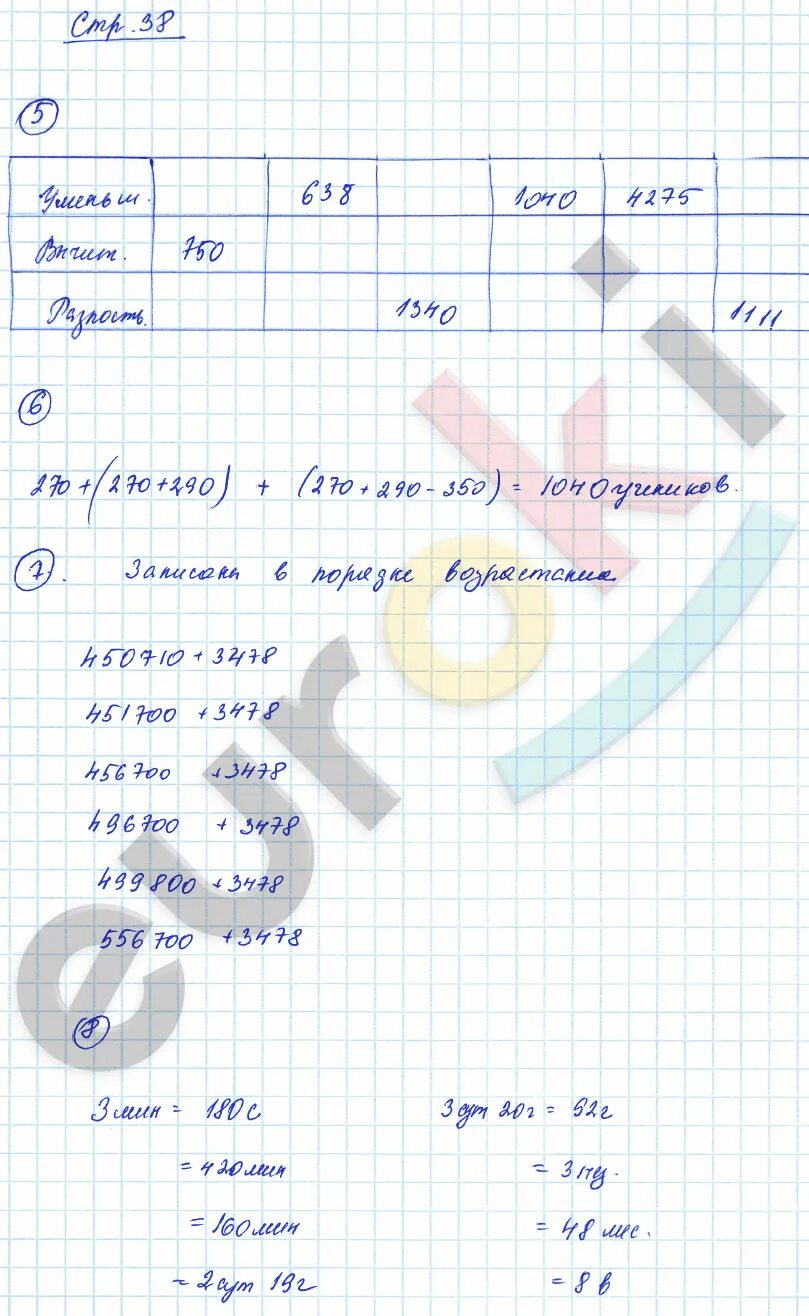 Стр. 38
5
Уменьш. 638 1040 4275
Вычит. 750
Разность. 1340 1111
6
270 + (270 + 290) + (270 + 290 - 350) = 1040 учеников.
7. Записаны в порядке возрастания
450710 + 3478
451700 + 3478
456700 + 3478
496700 + 3478
499800 + 3478
556700 + 3478
8
3 мин = 180 с 3 сут 20 г = 52 г
= 420 мин = 3 нд.
= 160 мин = 48 мес.
= 2 сут 19 г = 8 в
euroki